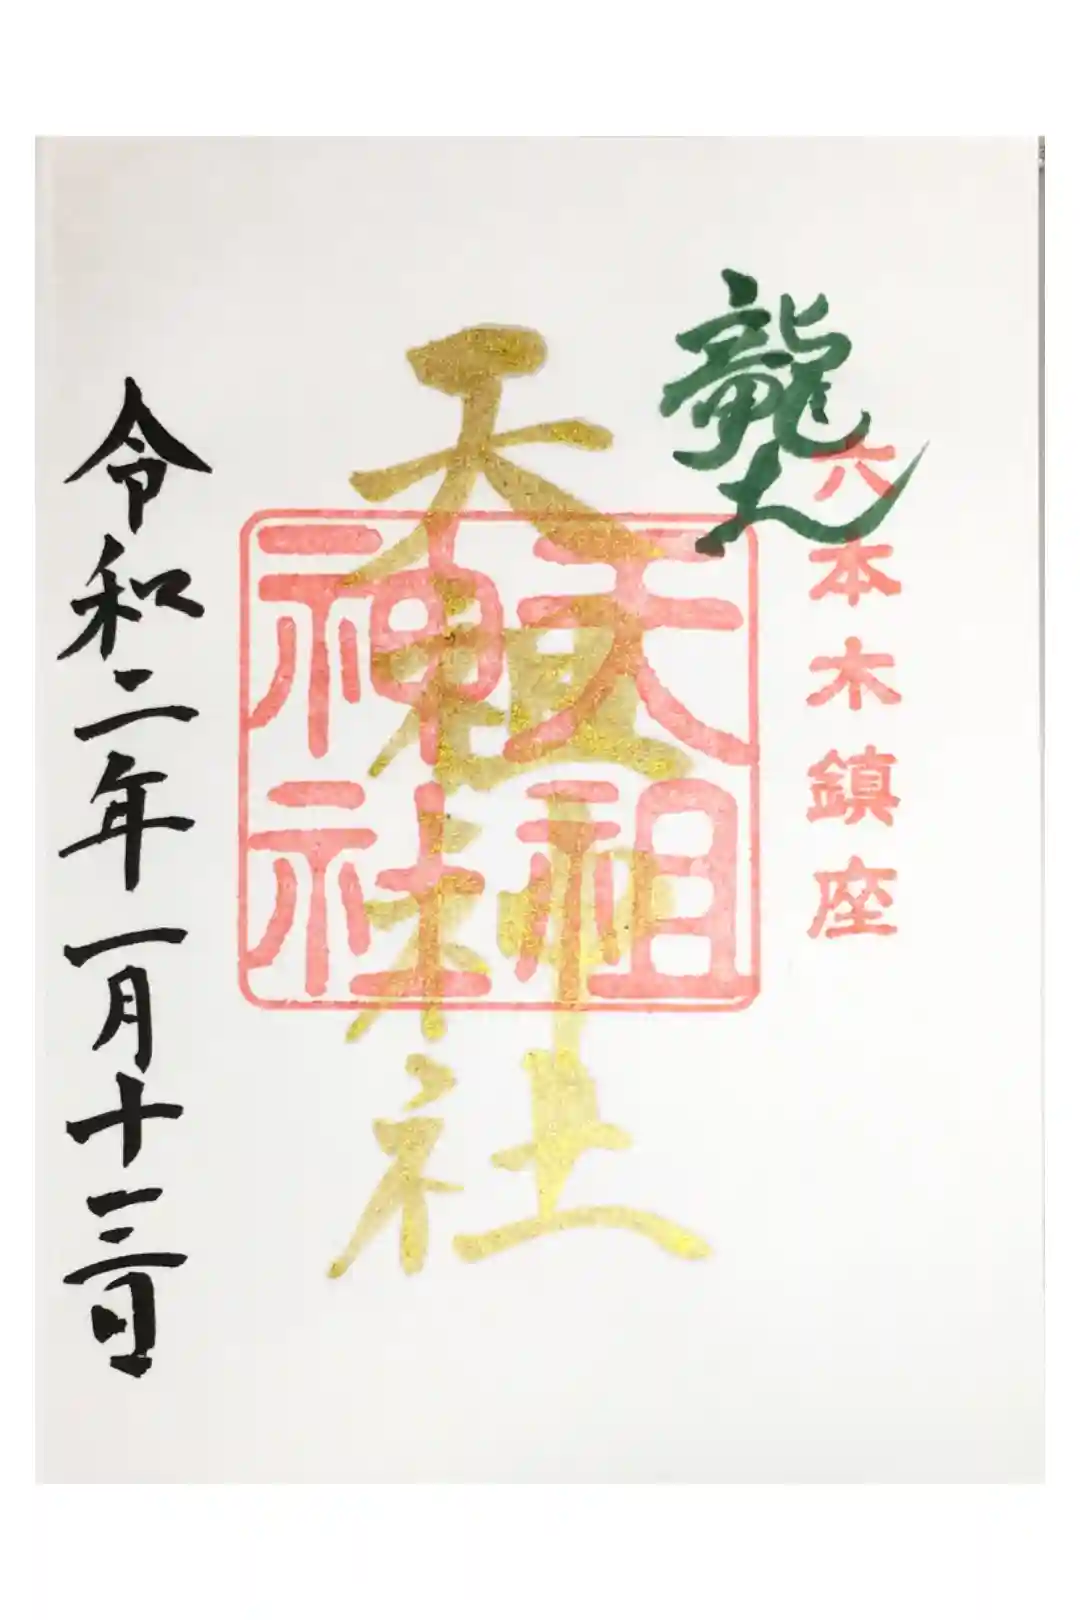 龍土
六本木鎮座
天祖神社
天祖神社
令和二年一月十三日